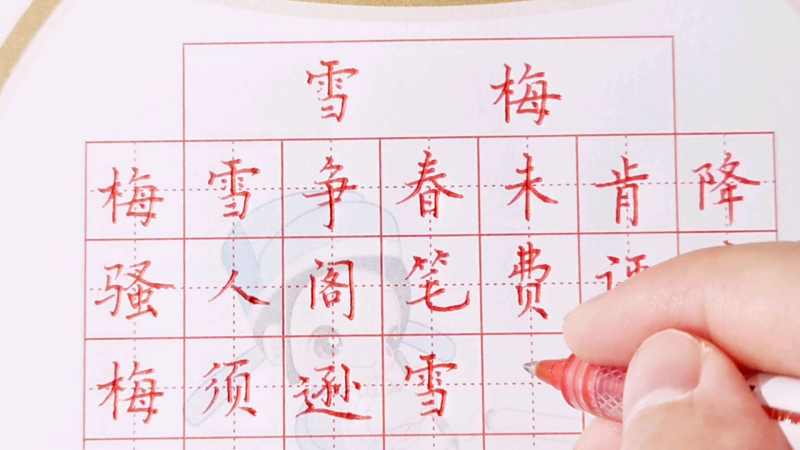 雪 梅
梅雪争春未肯降
骚人阁笔费评
梅须逊雪